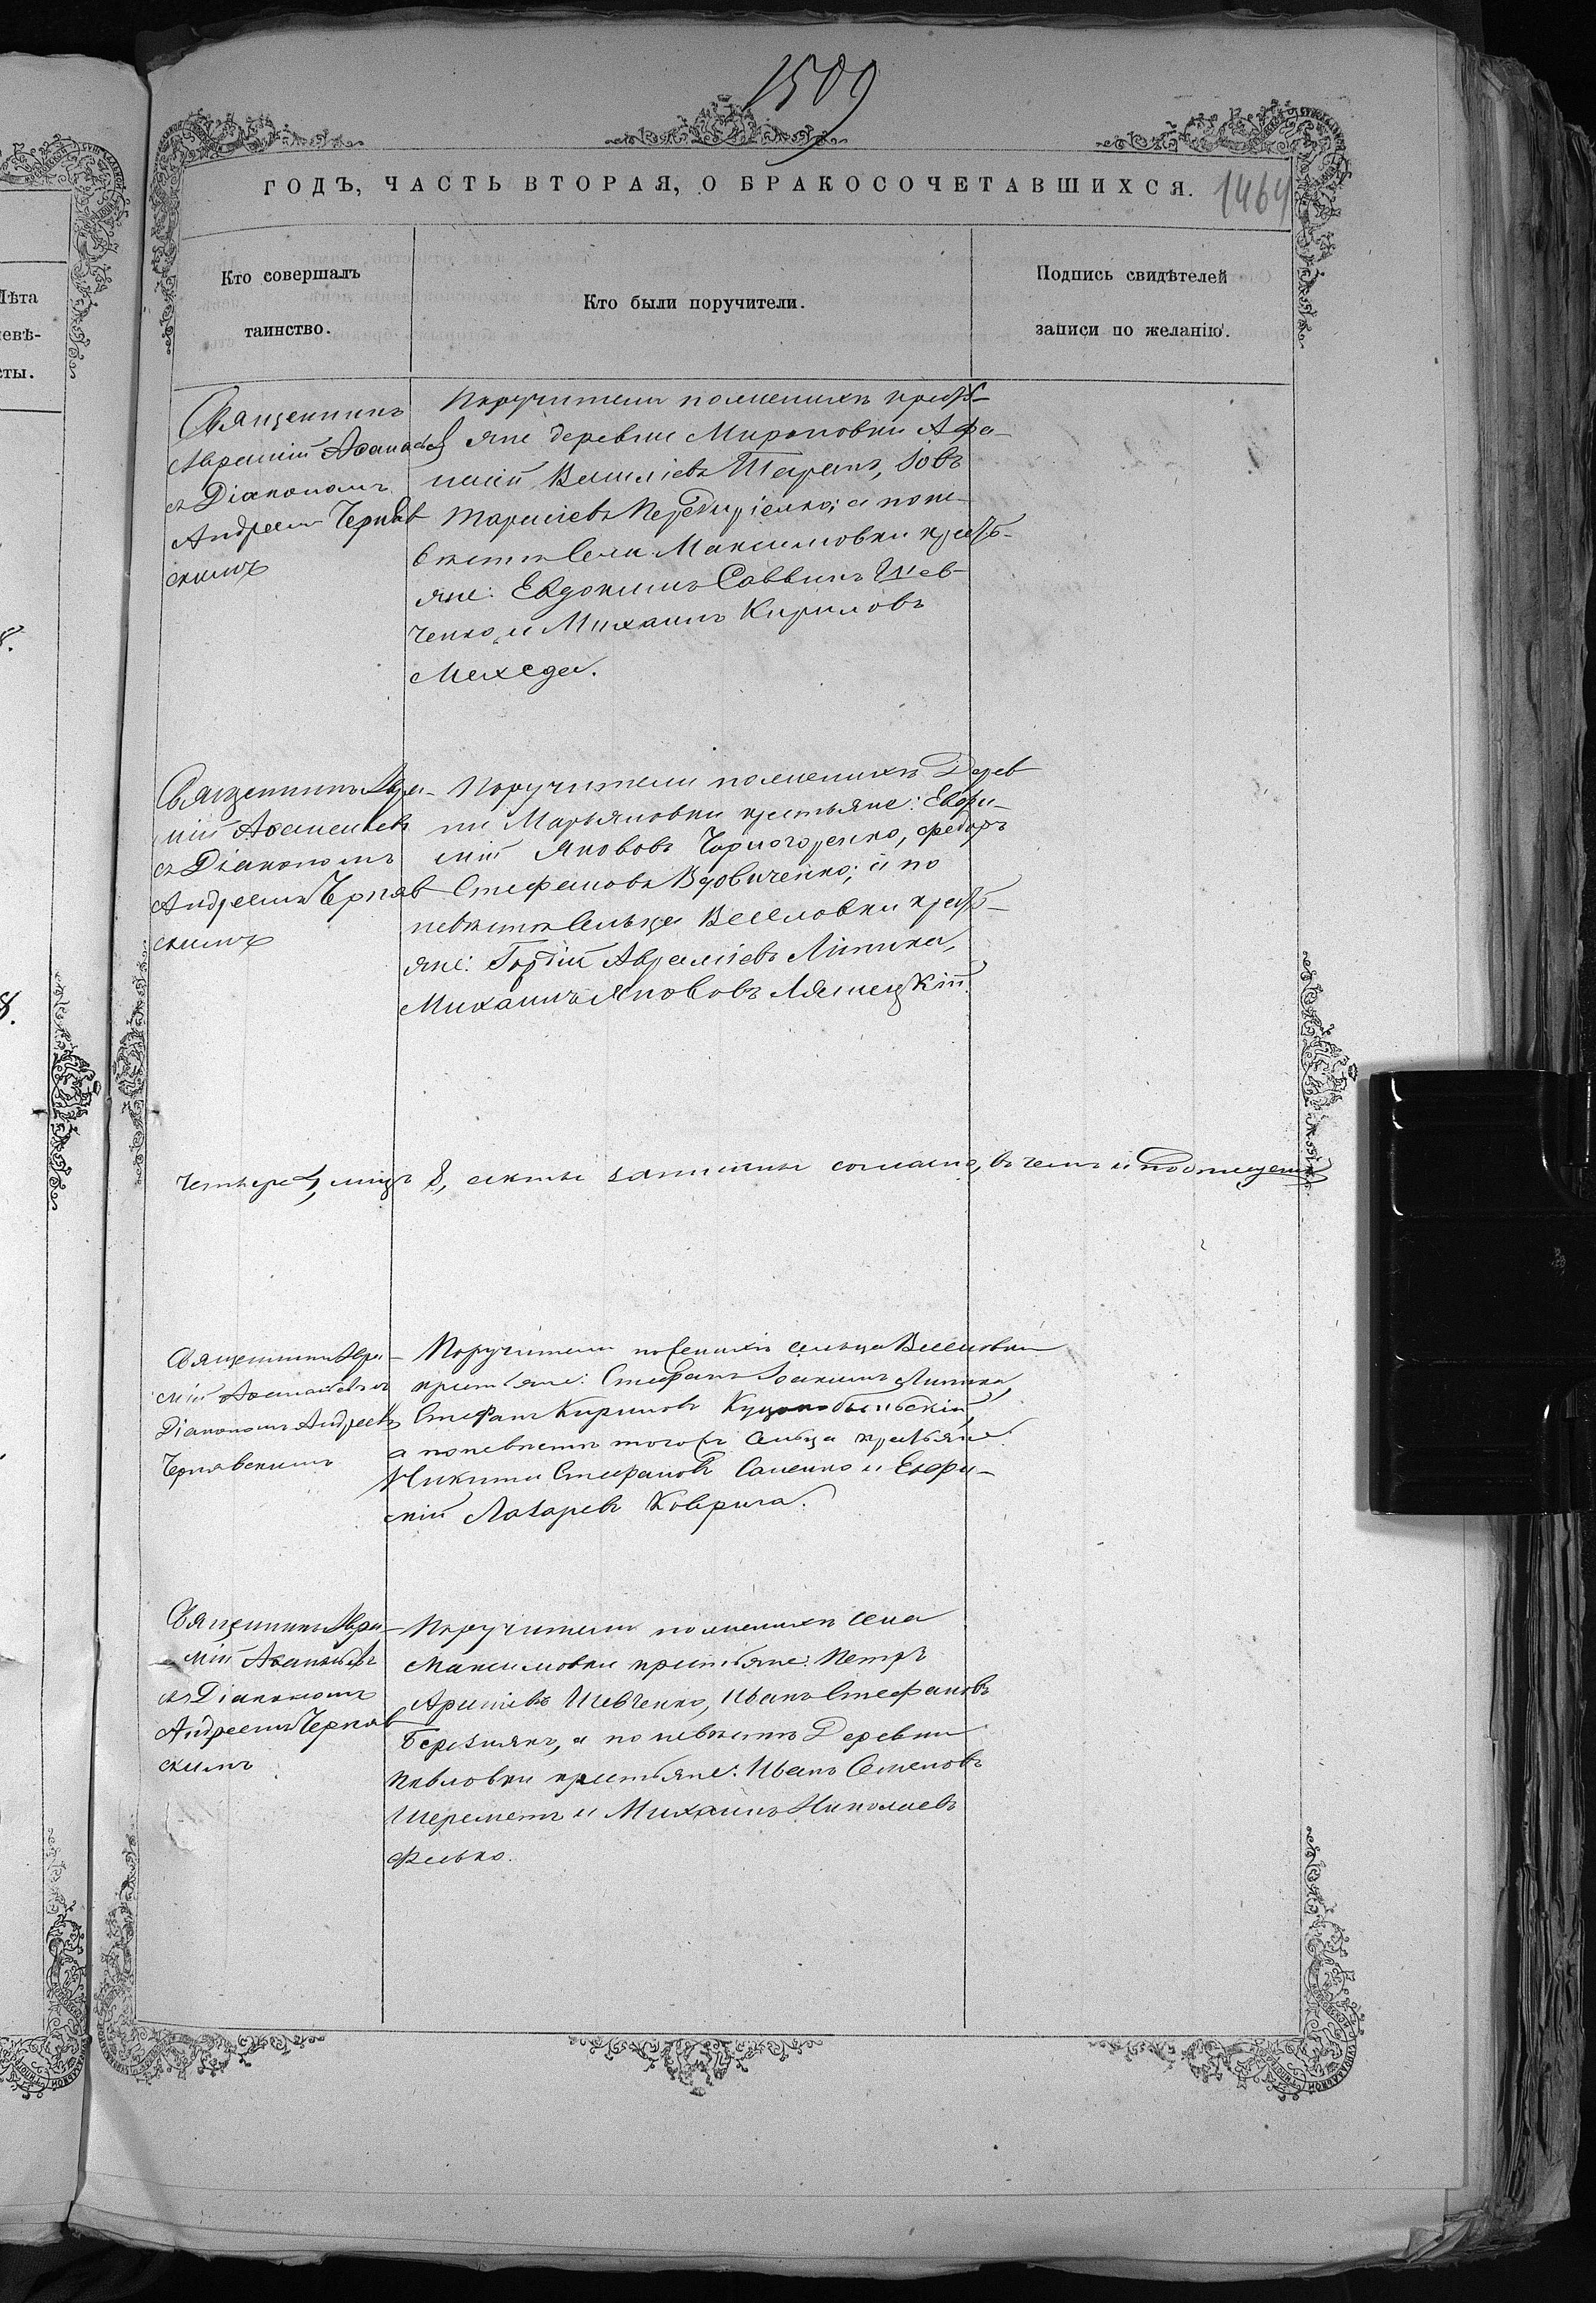 1509
ГОДЪ, ЧАСТЬ ВТОРАЯ, О БРАКОСОЧЕТАВШИХСЯ.
1464
Лѣта
невѣ-
сты.
Кто совершалъ
таинство.
Кто были поручители.
Подпись свидѣтелей
записи по желанію.
Священникъ
Авраамій Аѳанасьев
съ Діакономъ
Андреемъ Черняв
скимъ
Поручители по женихѣ крестъ-
яне деревни Мироновки Афа-
насій Василіевъ Таранъ, Іовъ
Тарасіевъ; а по не-
вѣстѣ Села Максимовки кресть-
яне: Евдокимъ Саввинъ Шев-
ченко, и Михаилъ Кириловъ
Мехеда.
Священникъ Авра-
мій Аѳанасіевъ
съ Діакономъ
Андреемъ Черняв
скимъ
Поручители по женихѣ Дерев
ни Марьяновки крестьяне: Евфи-
мій Якововъ Чорногоренко, Федоръ
Стефановъ Вдовиченко; а по
невѣстѣ Сельца Веселовки кресть-
яне: Гордій Авраміевъ Липика,
Михаилъ Якововъ
Четыре 4, лицъ 8, акты записаны согласно, въ чемъ и подпишемъ
Священникъ Авра-
мій Аѳанасіевъ съ
Діакономъ Андреемъ
Чернявскимъ
Поручители по женихѣ сельца Веселовки
крестьяне: Стефанъ Іоакимъ Липика,
Стефанъ Кириловъ
а по невѣстѣ того жъ Сельца крестьяне
Никита Стефановъ Саченко и Евфи-
мій Лазаревъ Коврига.
Священникъ Авра-
мій Аѳанасьевъ
съ Діакономъ
Андреемъ Черняв
скимъ
Поручители по женихѣ села
Максимовки крестьяне: Петръ
Шевченко, Иванъ Стефановъ
Березнякъ, а по невѣстѣ Деревни
Павловки крестьяне: Иванъ Семеновъ
Шереметъ и Михаилъ Николаевъ
Фесько.